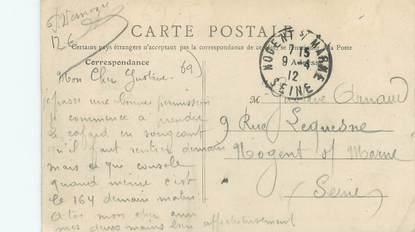 CARTE POSTALE
Certains pays étrangers n'acceptant pas la correspondance de ce côté, se renseigner à la Poste
Correspondance
NOGENT S/ MARNE
7 15
9 - 4
12
SEINE
12 €
69)
Mon Cher Gustave
je passe une bonne permission
je commence à prendre
le cafard en songeant
qu'il faut rentrer demain
mais ce qui console
quand même c'est
le 164 demain matin
à toi mon cher ami
mes deux mains bien affectueusement
M Gustave Arnaud
9 Rue Lequesne
Nogent s/ Marne
(Seine)